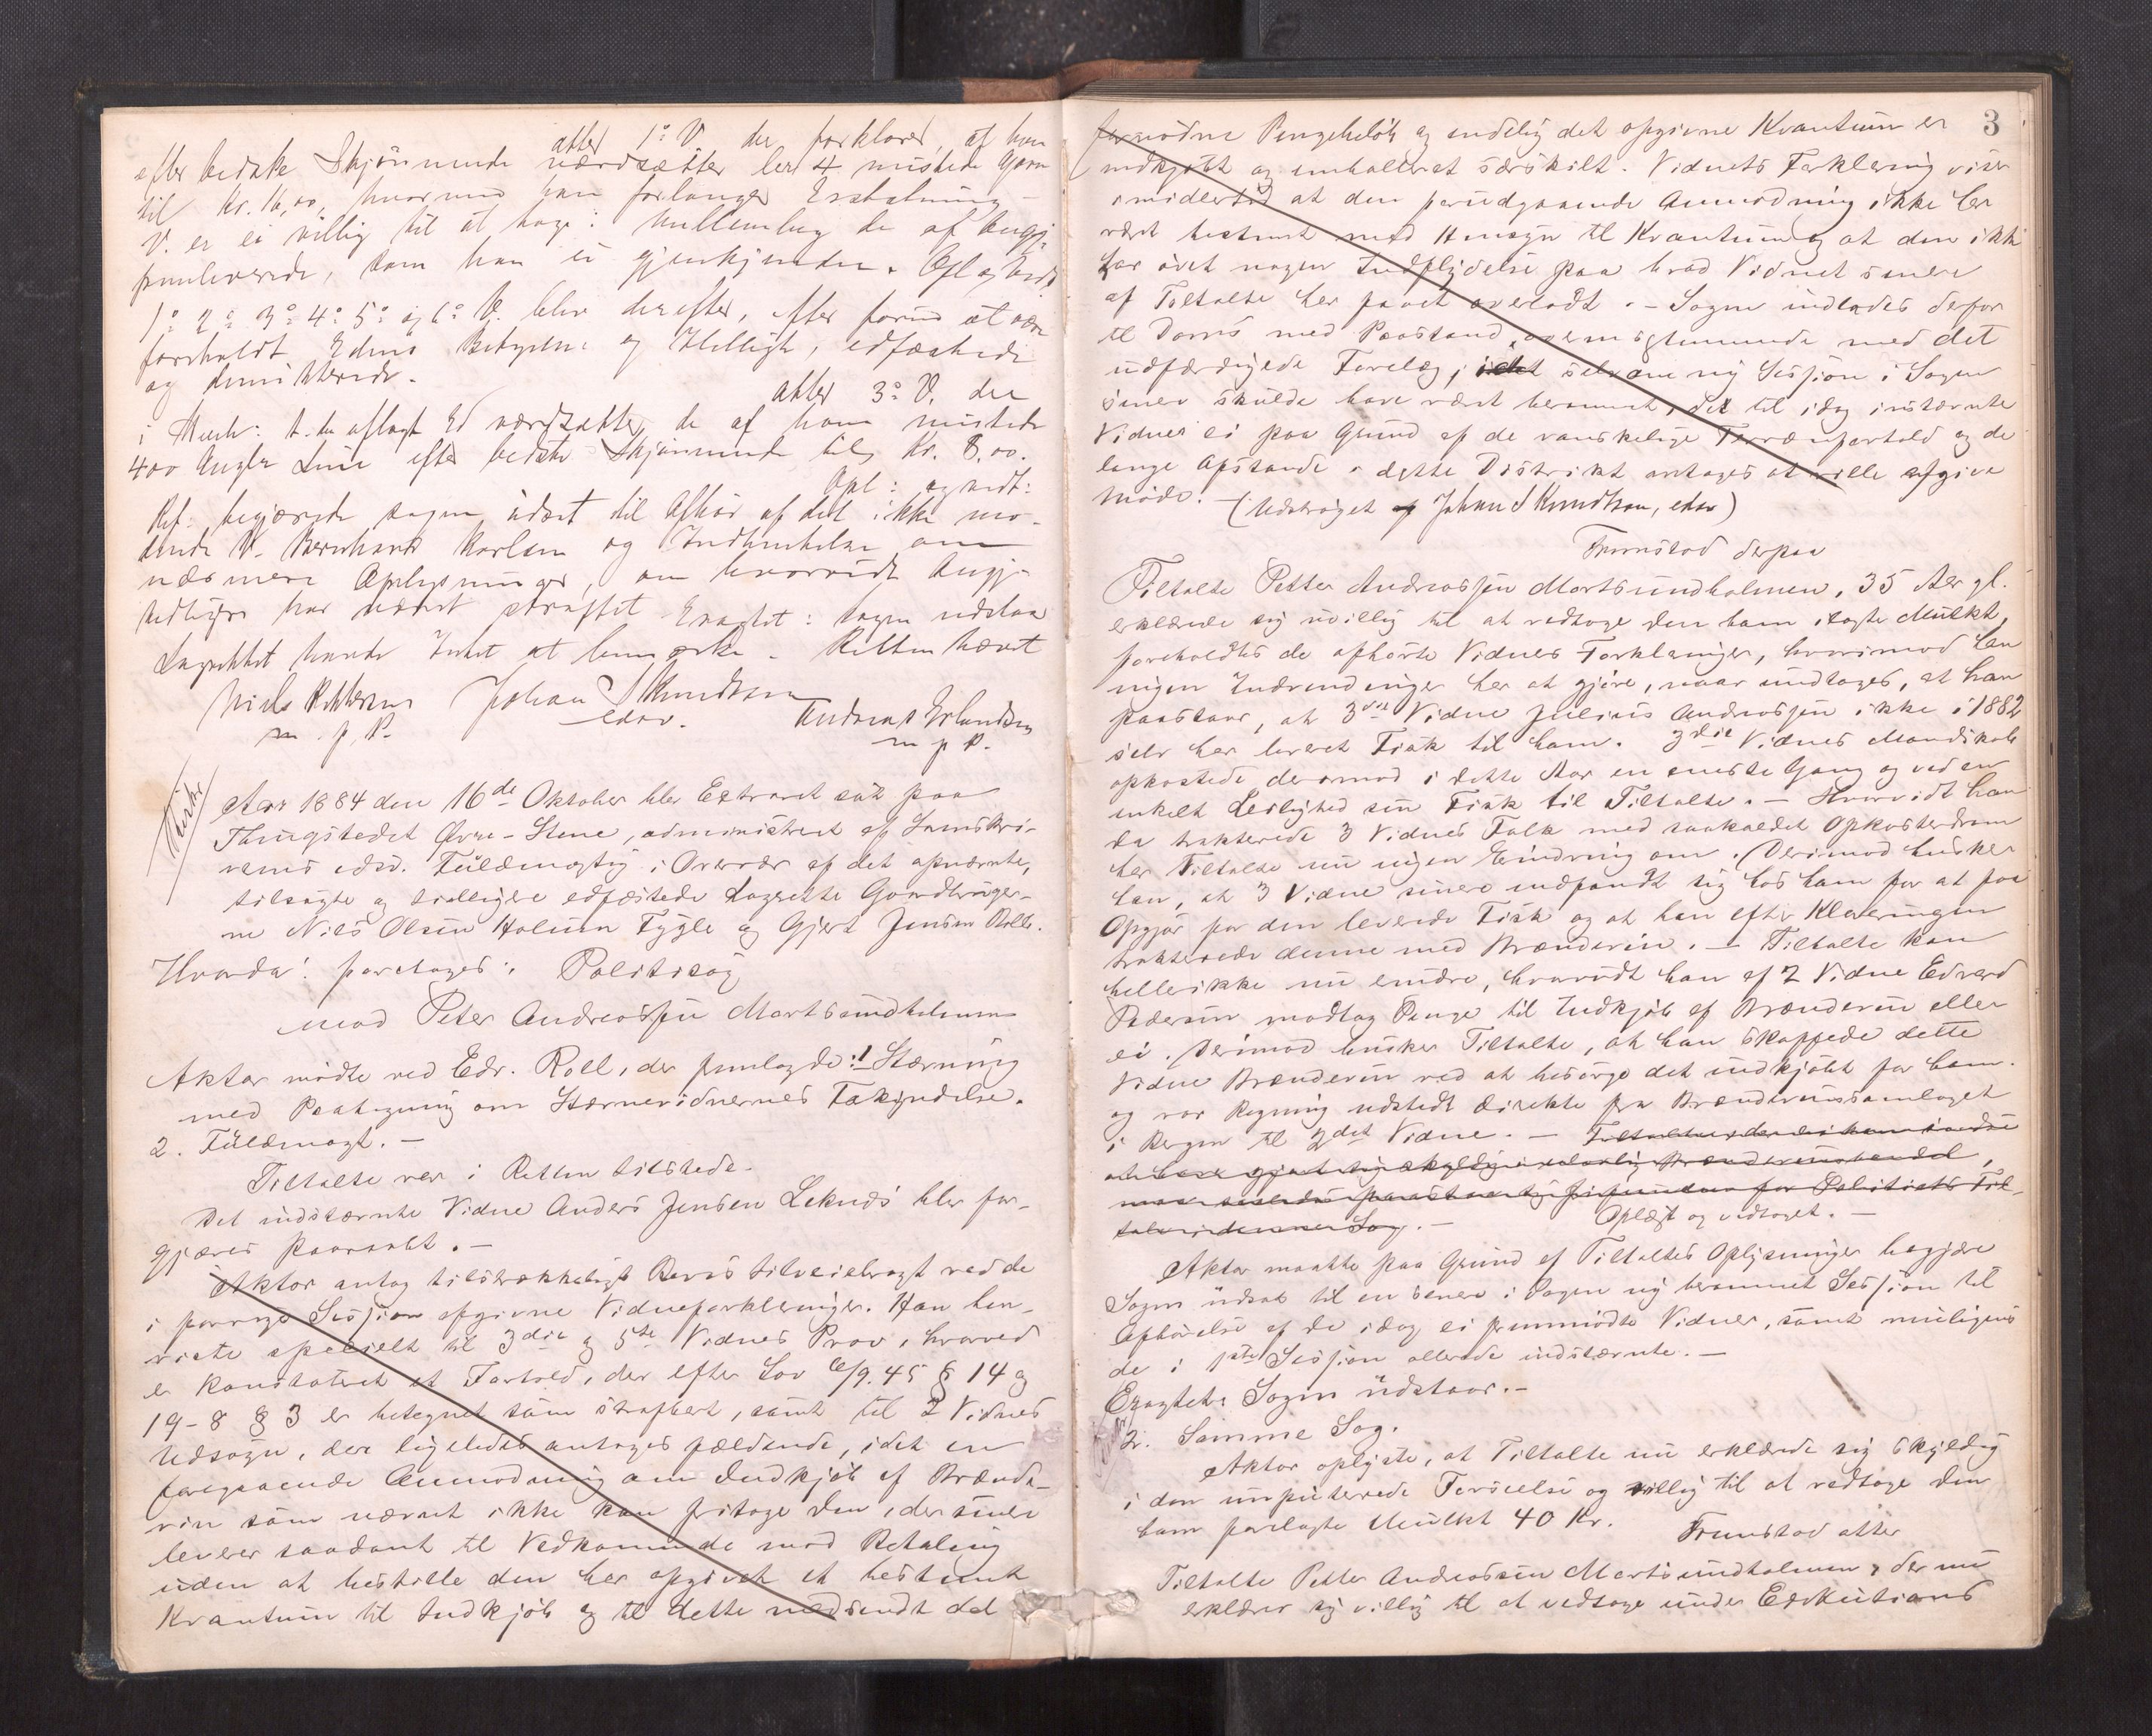 atter 1º V. der forklared, af han
efter bedste Skjønnende værdsætter 4 mistede Garn
til Kr. 16,00, hvormed han forlanger Erstatning –
V. er ei villig til at tage: mellemlag de af Angj:
som han ei gjenkjender. Opl. og vedt.
1º 2º 3º 4º 5º og 6º V. blev derefter, efter forud at være
foreholdt Edens Betydelse og Hellighed, edfæstede
og dimitterede.
atter 3º V. der
i Medh: t. den aflagte Ed værdsætter de af ham mistede
400 Angler Line efter bedste Skjønnende til Kr. 8,00.
Opl: og vedt:
Ref. begjærede sagen udsat til Afhør af det ikke mø-
dende V. Bernhard Karlsen og Indhentelse om
nærmere Oplysninger, om hvorvidt Angj-
tidligere har været straffet. Eragtet: Sagen udstaar
Lagrettet havde Intet at bemærke. Retten hævet
Johan S Knudtzon Andreas Erlandsen
edsv. m. p. P.
m. p. P.
Aar 1884 den 16de Oktober blev Extraret sat paa
Thingstedet Øvre-Stene, administreret af Sorenskri-
verens edsv. Fuldmægtig i Overvær af det opnævnte,
tilsagte og tidligere edfæstede Lagrette Gaardbruger-
ne Nils Olsen Holmen Fygle og Gjert Jensen Bolle.
Hvorda! foretages: Politisag
mod Peter Andreassen Mortsundholmen
Aktor mødte ved Edr. Roll, der fremlagde: 1 Stævning
med Paategning om Stævnevidnernes Forkyndelse.
2. Fuldmagt. –
Tiltalte var i Retten tilstede.
Det indstævnte Vidne Anders Jensen Leknæs blev for-
gjæves paaraabt. –
Aktor antog tilstrækkeligt Bevis tilveiebragt ved de
i forrige Session afgivne Vidneforklaringer. Han hen-
viste specielt til 3die og 5te Vidnes Prov, hvorved
er konstateret et Forhold, der efter Lov 6/9. 45 § 14 og
19-8 § 3 er betegnet som strafbart, samt til 2 Vidnes
Udsagn, der ligeledes antages fældende, idet en
foregaaende Anmodning om Indkjøb af Brænde-
vin som nævnt ikke kan fritage den, der siden
leverer saadant til Vedkommende mod Betaling
uden at bestille den har opgivet et bestemt
Kvantum til Indkjøb og til dette nedsendt det
3
fornødne Pengebeløb og endelig det opgivne Kvantum er
indkjøbt og emballeret særskilt. Vidnets Forklaring viser
imidlertid at den forudgaaende Anmodning ikke har
været bestemt med Hensyn til Kvantum og at den ikke
har øvet nogen Indflydelse paa hvad Vidnet senere
af Tiltalte har faaet overladt. – Sagen indlades derfor
til Doms med Paastand overensstemmende med det
udfærdigede Forelæg, idet selvom ny Session i Sagen
senere skulde have været berammet, det til idag instævnte
Vidne ei paa Grund af de vanskelige Terrænforhold og de
lange Afstande i dette Distrikt antages at ville afgive
Møde. – (Udstrøget af Johan S Knudtzon, edsv)
Fremstod derpaa
Tiltalte Petter Andreassen Mortsundholmen, 35 Aar gl.
erklærede sig uvillig til at vedtage den ham ilagte Mulkt,
foreholdtes de afhørte Vidners Forklaringer, hvorimod han
ingen Indvendinger har at gjøre, naar undtages, at han
paastaar, at 3die Vidne Julius Andreassen ikke i 1882
selv har leveret Fisk til ham. 3die Vidnes Mandskab
opkastede derimod i dette Aar en eneste Gang og ved en
enkelt Leilighed sin Fisk til Tiltalte. – Hvorvidt han
da trakterede 3 Vidnes Folk med saakaldet Opkasterdram
har Tiltalte nu ingen Erindring om. Derimod husker
han, at 3 Vidne senere indfandt sig hos ham for at faa
Opgjør for den leverede Fisk og at han efter Klareringen
trakterede denne med Brændevin. – Tiltalte kan
hellerikke nu erindre, hvorvidt han af 2 Vidne Edvard
Pedersen modtog Penge til Indkjøb af Brændevin eller
ei. Derimod husker Tiltalte, at han skaffede dette
Vidne Brændevin ved at besørge det indkjøbt for ham.
og var Regning udstedt direkte fra Brændevinssamlaget
i Bergen til 2det Vidne. –
at have gjort sig skyldig i ulovlig Brændevinshandel,
maa saaledes paastaa sig frifunden for Politiets Til-
tale i denne Sag. – Oplæst og vedtaget. –
Aktor maatte paa Grund af Tiltaltes Oplysninger begjære
Sagen udsat til en senere i Sagen ny berammet Session til
Afhørelse af de idag ei fremmødte Vidner, samt muligens
de i 1ste Session allerede indstævnte. –
Eragtet: Sagen udstaar. –
2. Samme Sag.
Aktor oplyste, at Tiltalte nu erklærede sig skyldig
i den imputerede Forseelse og villig til at vedtage den
ham forelagte Mulkt 40 Kr. Fremstod atter
Tiltalte Petter Andreassen Mortsundholmen, der nu
erklærer sig villig til at vedtage under Exekutions